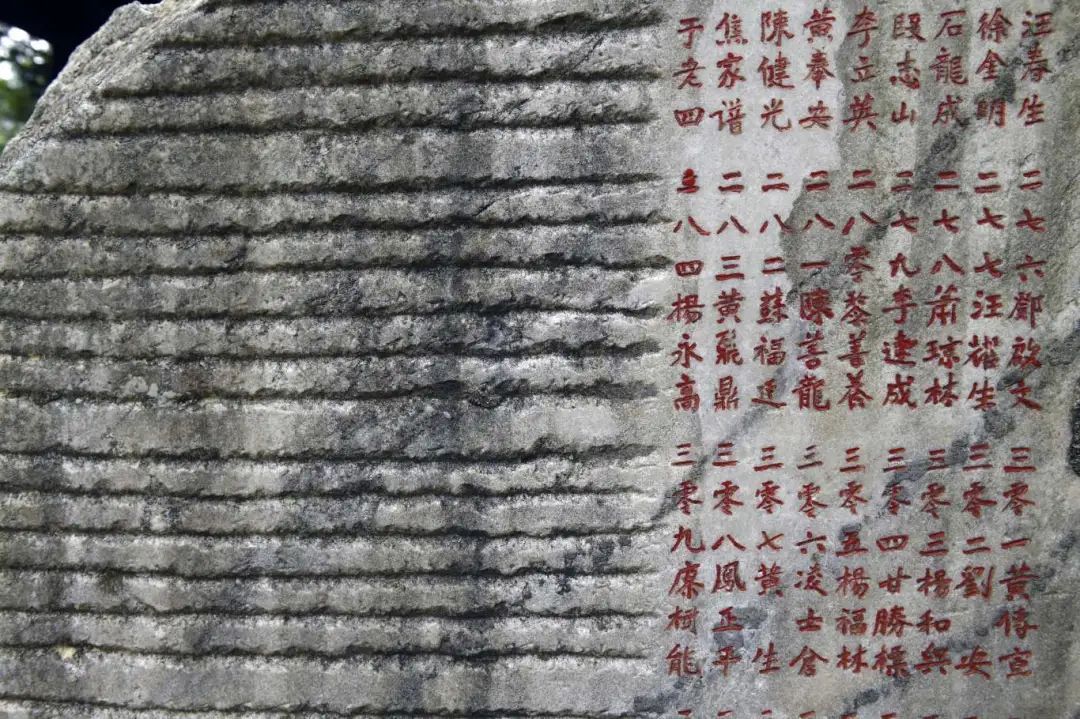 汪春生 二七六鄧啟文 三零一黃傳宣
徐金明 二七七汪耀生 三零二劉 安
石龍成 二七八蕭琼林 三零三楊和興
段志山 二七九李建成 三零四甘勝標
李立英 二八零黎善 三零五楊福林
黃奉安 二八一陳善龍 三零六凌士倉
陳健光 二八二蘇福廷 三零七黃 生
焦家譜 二八三黃鼎 三零八鳳正平
于老四 二八四楊永高 三零九康柯能